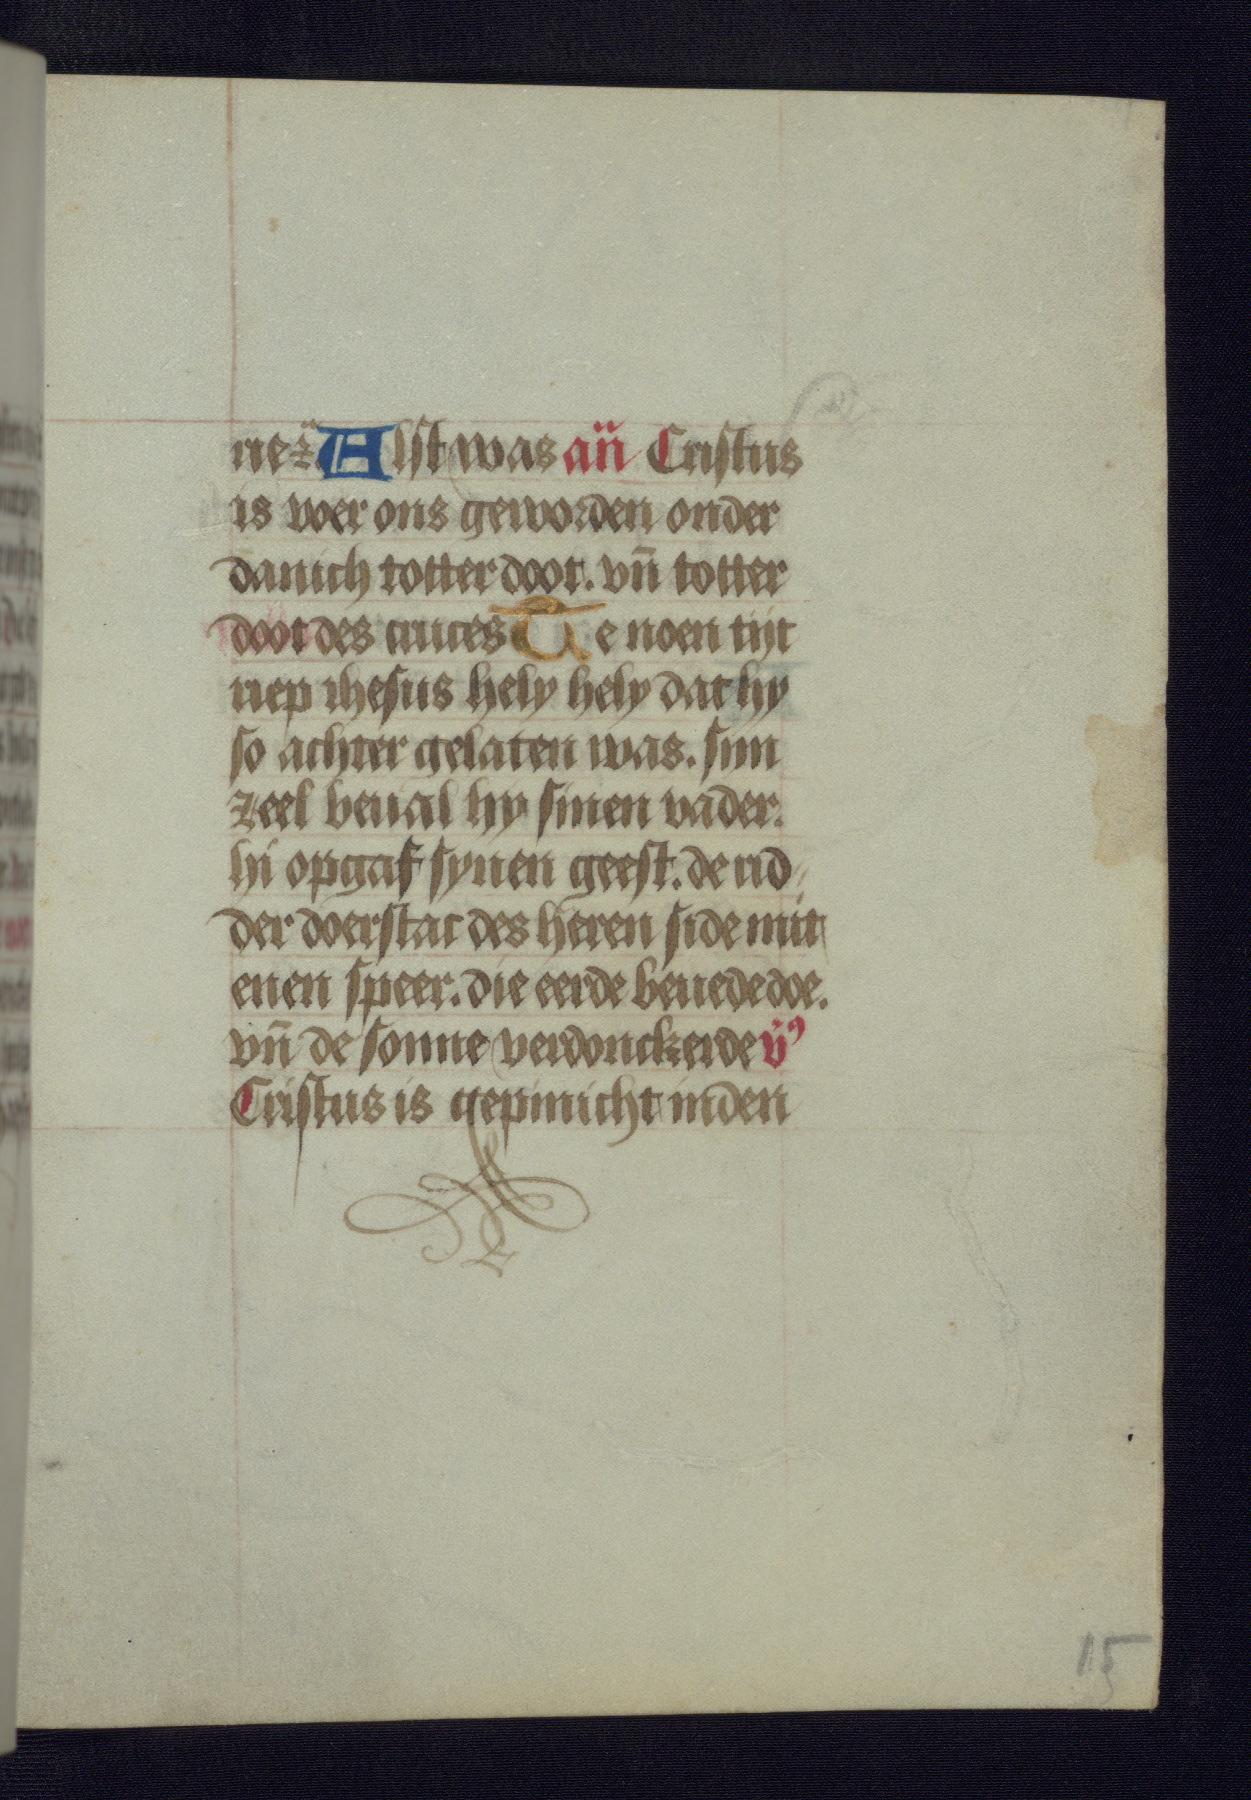 rie ⁊̈ Alst was an̄ Cristus
is voer ons geworden onder
danich totter doot. vn̄ totter
doot des cruces Te noen tijt
riep ihesus hely hely dat hy
so achter gelaten was. sijn
zeel beual hy sinen vader.
hi opgaf synen geest. de rid
der doerstac des heren side mit
enen speer. die eerde beuede doe.
vn̄ de sonne verdonckerde v̄ꝰ
Cristus is gepinicht in den
15